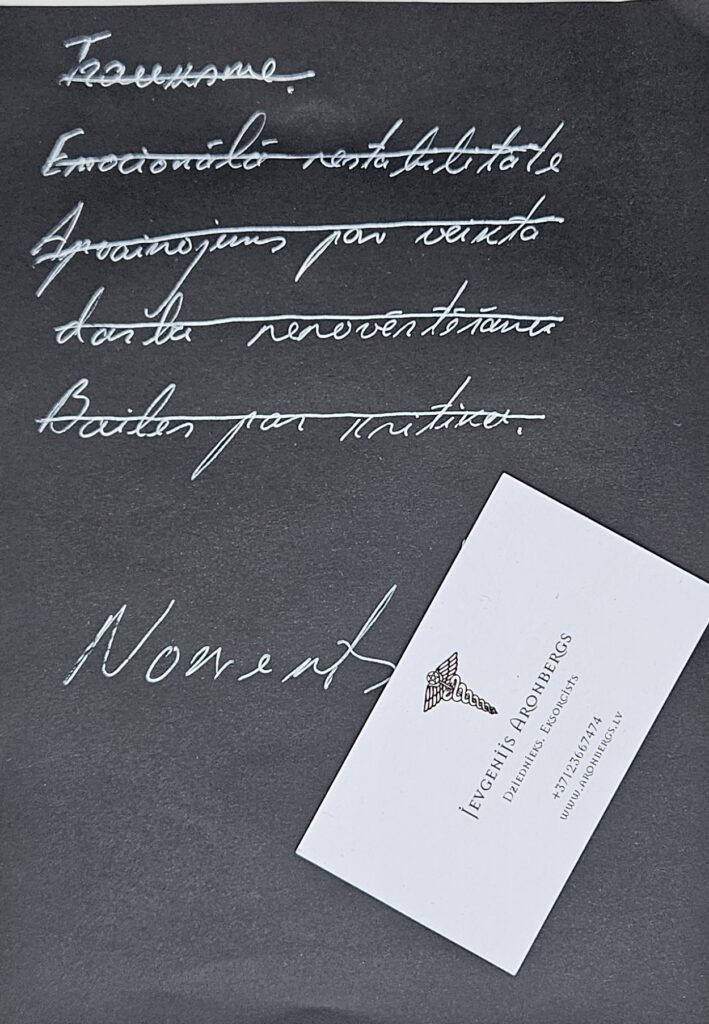 Trauksme.
Emocionālā nestabilitāte
Apvainojums par veikta
darbu nenovērtēšanu
Bailes par kritiku.
Noņemts
Jevgenijs Aronbergs
Dziednieks. Eksorcists
+37123667474
www.aronbergs.lv